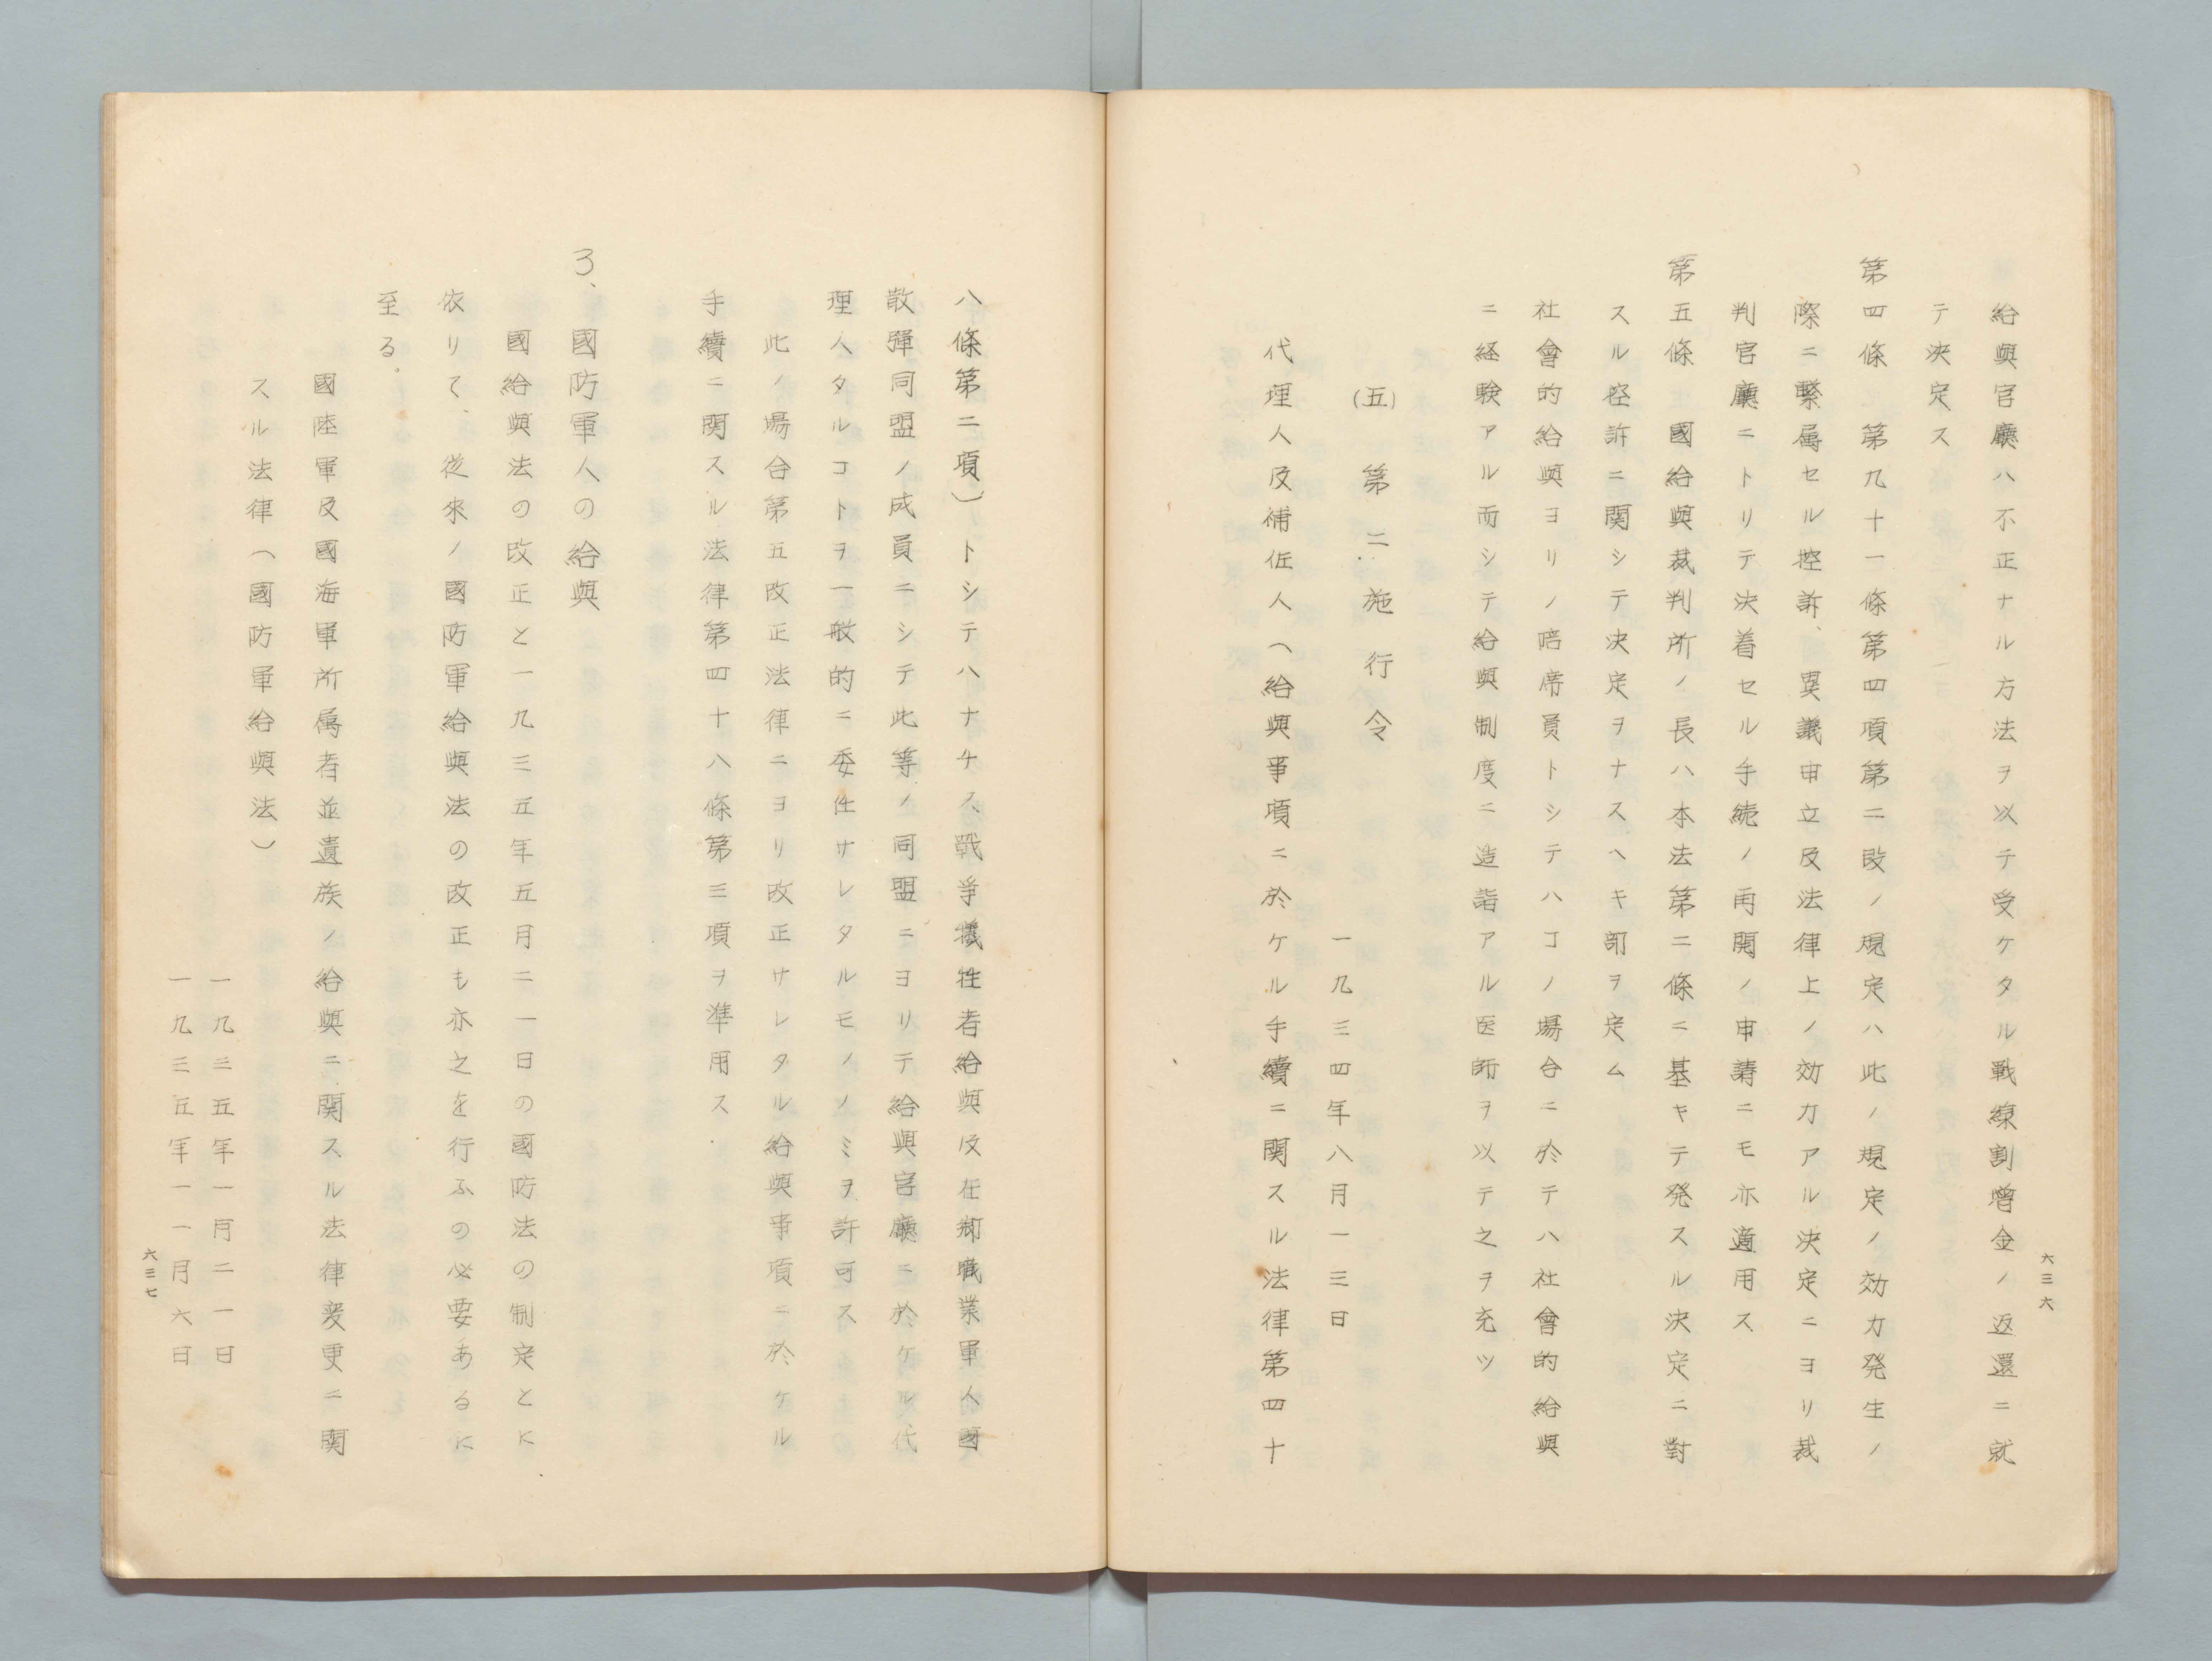 六三六
給與官廳ハ不正ナル方法ヲ以テ受ケタル戰線割增金ノ返還ニ就
テ決定ス
第四條　第九十一條第四項第二段ノ規定ハ此ノ規定ノ効力発生ノ
際ニ繋属セル控訴、異議申立及法律上ノ効力アル決定ニヨリ裁
判官廳ニトリテ決着セル手続ノ再開ノ申請ニモ亦適用ス
第五條　國給與裁判所ノ長ハ本法第二條ニ基キテ発スル決定ニ對
スル控訴ニ関シテ決定ヲナスヘキ部ヲ定ム
社會的給與ヨリノ陪席員トシテハコノ場合ニ於テハ社會的給與
ニ経験アル而シテ給與制度ニ造詣アル医師ヲ以テ之ヲ充ツ
(五)　第二施行令
一九三四年八月一三日
代理人及補佐人（給與事項ニ於ケル手續ニ関スル法律第四十
八條第二項）トシテハナチス戰爭犧牲者給與及在郷職業軍人國
散弾同盟ノ成員ニシテ此等ノ同盟ニヨリテ給與官廳ニ於ケル代
理人タルコトヲ一般的ニ委任サレタルモノノミヲ許可ス
此ノ場合第五改正法律ニヨリ改正サレタル給與事項ニ於ケル
手續ニ関スル法律第四十八條第三項ヲ準用ス
3、國防軍人の給與
國給與法の改正と一九三五年五月二一日の國防法の制定とに
依りて、從來ノ國防軍給與法の改正も亦之を行ふの必要あるに
至る。
國陸軍及國海軍所属者並遺族ノ給與ニ関スル法律変更ニ関
スル法律（國防軍給與法）
一九三五年一月二一日
一九三五年一一月六日
六三七